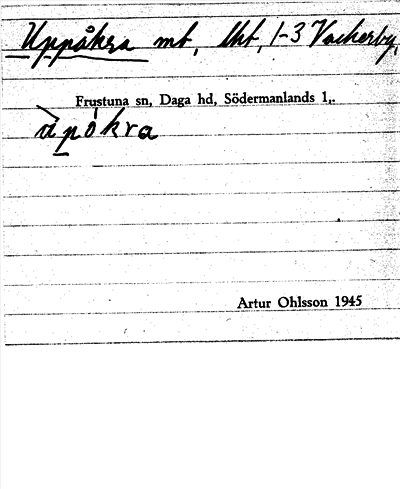 Uppåkra mt, lht, 1-3 Vackerby,
Frustuna sn, Daga hd, Södermanlands l,.
ùpòkra
Artur Ohlsson 1945